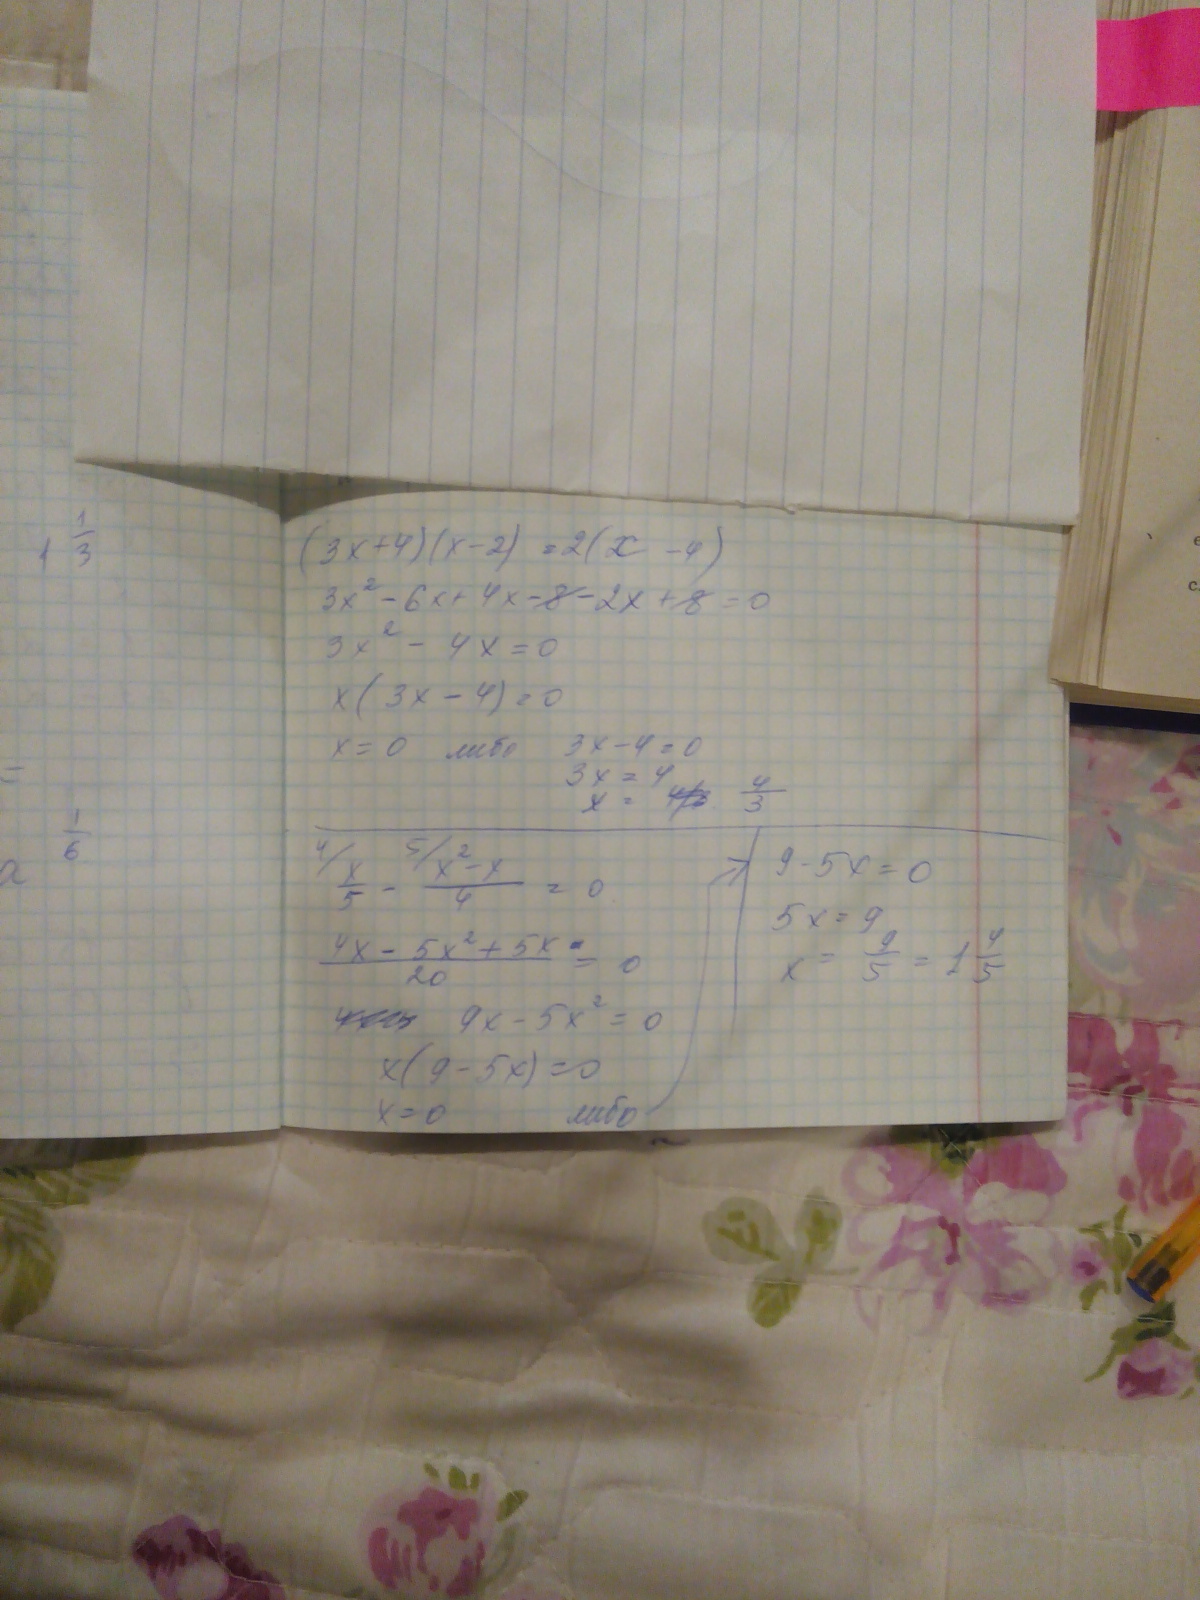 1 1/3
=
1/6
(3x+4)(x-2) = 2(x -4)
3x² - 6x + 4x - 8 - 2x + 8 = 0
3x² - 4x = 0
x(3x - 4) = 0
x = 0 либо 3x - 4 = 0
3x = 4
x = 4/3
4/ x/5 - 5/ (x² - x)/4 = 0
(4x - 5x² + 5x)/20 = 0
9x - 5x² = 0
x(9 - 5x) = 0
x = 0 либо
9 - 5x = 0
5x = 9
x = 9/5 = 1 4/5